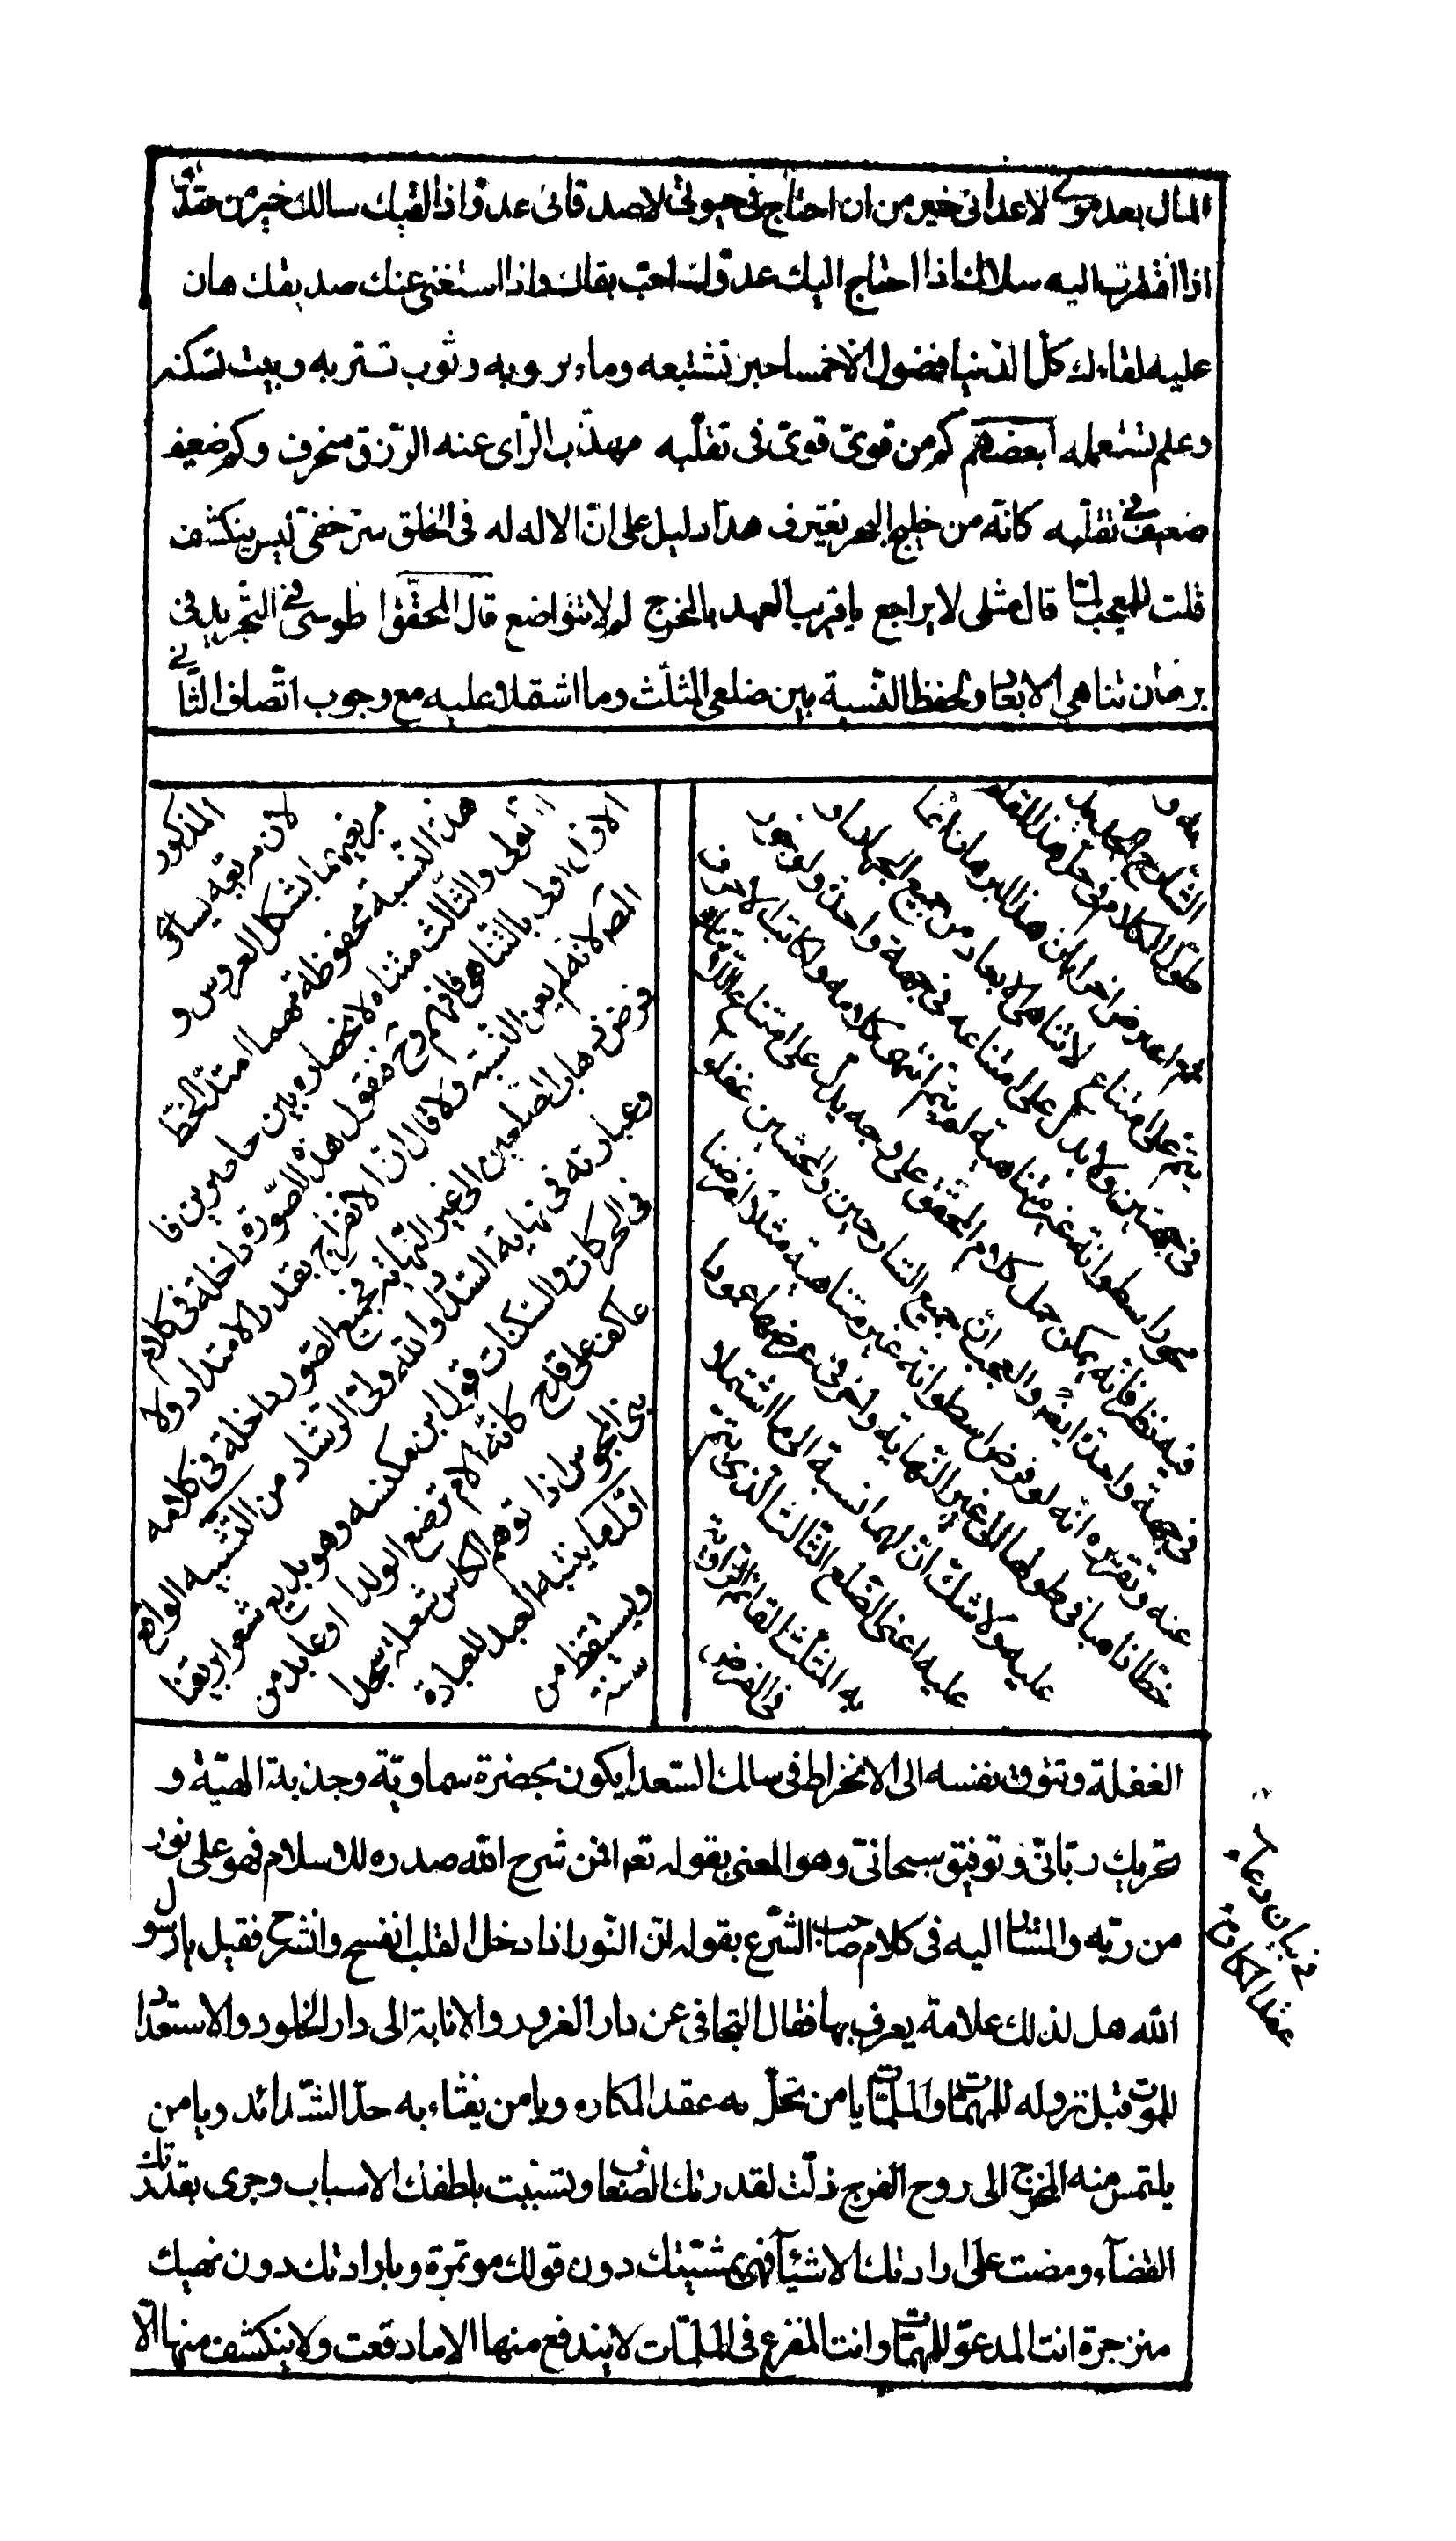 المال بعد موتى لاعدائى خير من ان احتاج فى حيوتى لاصدقائى عدوّ اذا لقيك سالك خير من صديق
اذا افتقرت اليه سلاك اذا احتاج اليك عدوّك احبّ بقاك واذا استغنى عنك صديقك هان
عليه لقاءك كلّ الدّنيا فضول الّا خمسا خبز تشبعه وماء يرويه وثوب تستتر به وبيت تسكنه
وعلم تستعمله بعضهم كم من قوىّ قوىّ فى تقلّبه مهذّب الرّاى عنه الرّزق منحرف وكم ضعيف
ضعيف فى تقلّبه كانّه من خليج البحر يغترف هذا دليل على انّ الاله له فى الخلق سرّ خفىّ ليس ينكشف
قلت للمعجب لمّا قال مثلى لا يراجع يا قريب العهد بالمخرج لم لا تتواضع قال المحقّق الطوسى فى التّجريد فى
برهان تناهى الابعاد ولحفظ النّسبة بين ضلعى المثلّث وما اشتملا عليه مع وجوب اتّصاف الثّانى
به و
الشّارح الجديد
طوّل الكلام فى حلّ هذا المقام
ثم اعترض اخرا بان هذا البرهان انما
يتمّ على امتناع لا تناهى الابعاد من جميع الجهات او
فى جهتين ولا يدلّ على امتناعه فى جهة واحدة ولو جوز
مجوز اسطوانة غير متناهية لم يتم انتهى كلامه ولكاتب الاحرف
فيه نظر فانّه يمكن حمل كلام المحقّق على وجه يدلّ على امتناع اللّاتناهى
فى جهة واحدة ايضً والعجب انّ جميع الشارحين والمحشين غفلوا
عنه وتقريره انّه لو فرض اسطوانة غير متناهية مثلا فرضنا
خطّا ذاهبا فى طولها الى غير النّهاية واخر فى عرضها عمودا
عليه ولا شكّ انّ لهما نسبة الى ما اشتملا
عليه اعنى الضّلع الثّالث الّذى يتمّ
به المثلّث القائم الزّاوية
فى الفرضد
المذكور
لان مربعه يساوى
مربعيهما بشكل العروس و
هذه النّسبة محفوظة مهما امتدّ الخطّ
الاولى والثّالث متناه لانحصاره بين حاصرين فا
الاول اولى بالتّناهى فافهم وحَ فنقول هذه الصّورة داخلة فى كلام
المصَ لانه لم يعين النّسبة ولا قال انّ الانفراج بقدر الامتداد ولا
فرض ذهاب الضّلعين الى غير النّهاية فجميع الصّور داخلة فى كلامه
وعبارته فى نهاية السّداد والله ولىّ الرّشاد من التّشبيه الواقع
فى الحركات والسّكنات قول ابن مكنسه وهو بديع شعر ابريقنا
عاكف على قدح كانّه الام ترضع الولدا او عابد من
بنى المجوس اذا توهم الكاس شعلة سجدا
اوّل ما يتنبّه العبد للعبادة
ويستيقظ من
سنة
الغفلة وتتوق نفسه الى الانخراط فى سالك السّعدا يكون بخضرة سماويّة وجذبة الهيّة و
تحريك ربّانىّ وتوفيق سبحانىّ وهو المعنى بقوله تعه افمن شرح الله صدره للاسلام فهو على نور
من ربّه والمشار اليه فى كلام صاحب الشّرع بقوله انّ النّور اذا دخل القلب انفسح وانشرح فقيل يا رسول
الله هل لذلك علامة يعرف بها فقال التجافى عن دار الغرور والانابة الى دار الخلود والاستعداد
للموت قبل نزوله للمهمّات والملمّات يا من تحلّ به عقد المكاره ويا من يفثاء به حدّ الشّدائد ويا من
يلتمس منه المخرج الى روح الفرج ذلّت لقدرتك الصّعاب وتسبّبت بلطفك الاسباب وجرى بقدرتك
القضآء ومضت على ارادتك الاشيآء فهى بمشيّتك دون قولك موتمرة وبارادتك دون نهيك
منزجرة انت المدعوّ للمهمّات وانت المفزع فى الملمّات لا يندفع منها الا ما دفعت ولا ينكشف منها الّا
در بيان دعاء
عند المكاره